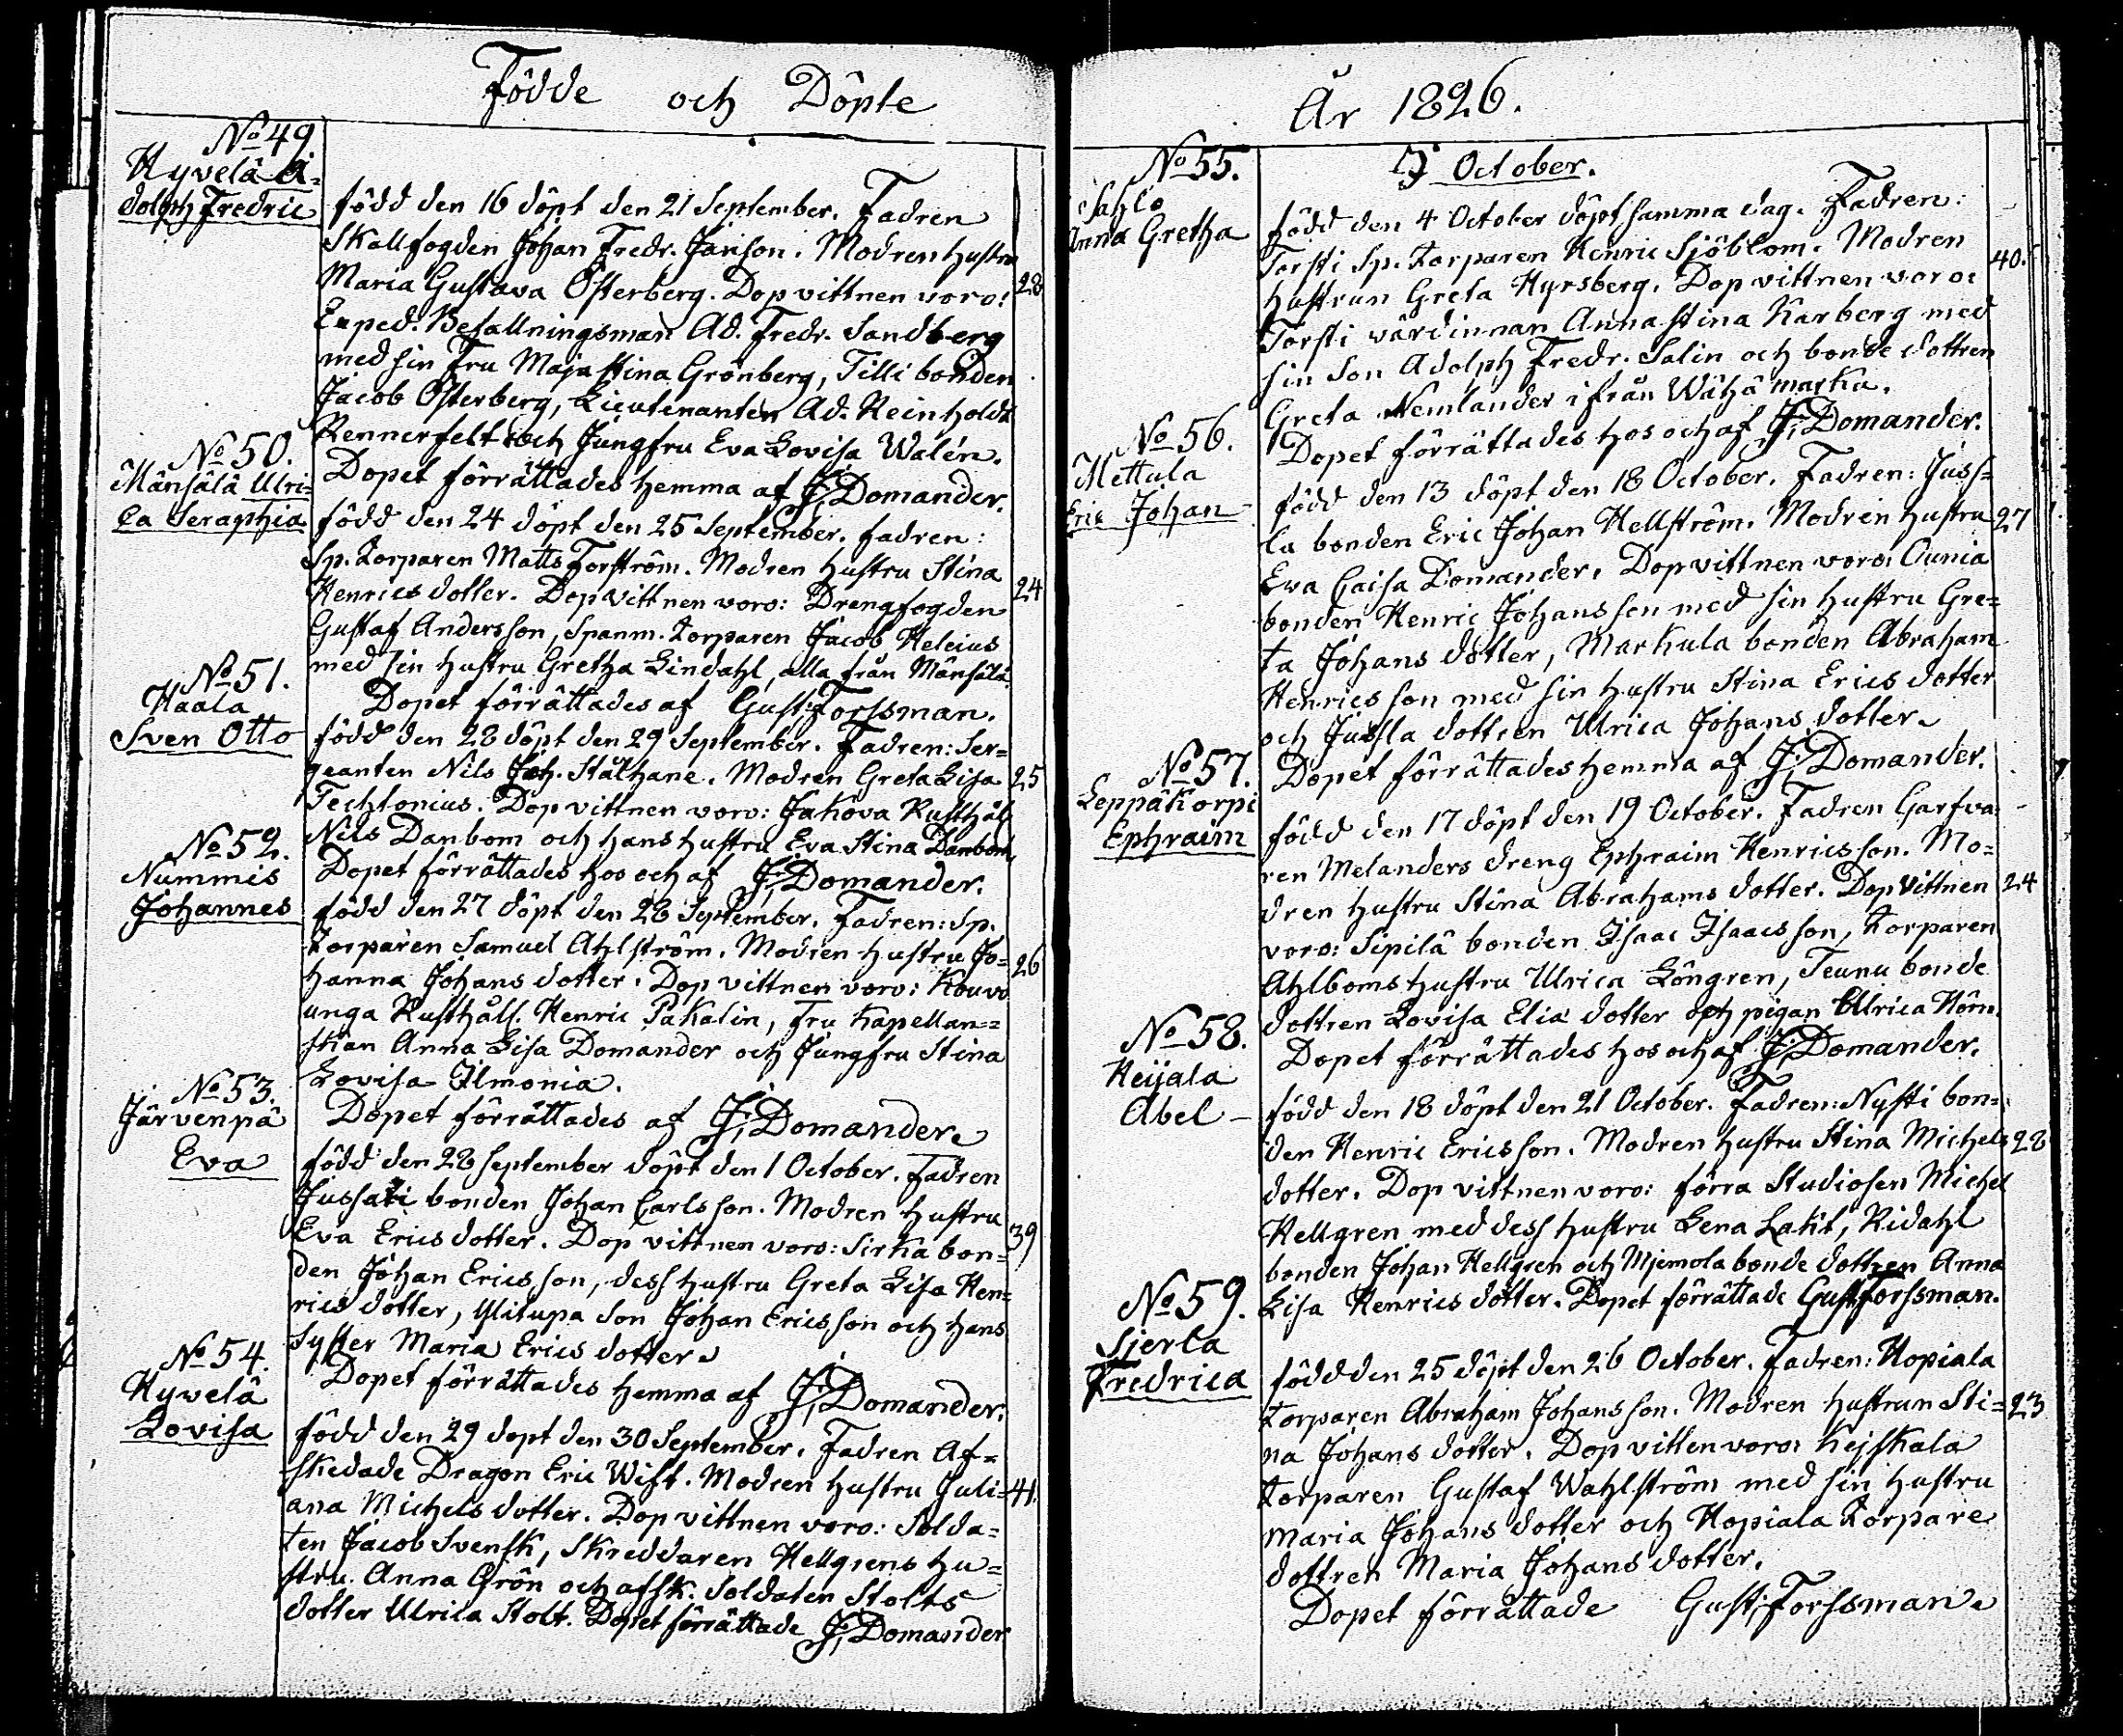 Födde och Döpte
No 49.
Hyvelä A=
dolph Fredric
född den 16 döpt den 21 September. Fadren
Skallfogden Johan Fredr. Janson. Modren hustru
Maria Gustava Österberg. Dop vittnen voro: 28
Exped. Befallningsman Ad. Fredr. Sandberg
med sin Fru Maja Stina Grönberg, Tilli bonden
Jacob Österberg, Lieutenanten Ad. Reinholdt
Rennerfelt och Jungfru Eva Lovisa Walén.
Dopet förrättades hemma af J. Domander.
No 50.
Mänsälä Ulri=
ca Seraphia
född den 24 döpt den 25 September. fadren:
Sp. Torparen Matts Forström. Modren Hustru Stina
Henrics dotter. Dop vittnen voro: Drengfogden 24
Gustaf Andersson, Spanm. Torparen Jacob Heleius
med sin hustru Gretha Lindahl, alla från Mänsälä.
Dopet förrättades af Gust. Forssman.
No 51.
Haala
Sven Otto
född den 28 döpt den 29 September. Fadren: Ser=
geanten Nils Joh. Stålhane. Modren Greta Lisa 25
Techlonius. Dop vittnen voro: Jakova Rusthål.
Nils Danbom och hans hustru Eva Stina Danbom,
Dopet förrättades hos och af J. Domander.
No 52.
Nummis
Johannes
född den 27 döpt den 28 September. Fadren: Sp.
Torparen Samuel Ahlström. Modren hustru Jo= 26
hanna Johans dotter. Dop vittnen voro: Kouvo
unga Rusthåll. Henric Pakalin, Fru Kapellan=
skan Anna Lisa Domander och Jungfru Stina
Lovisa Ilmonia.
Dopet förrättades af J. Domander.
No 53.
Järvenpä
Eva
född den 28 September döpt den 1 October. Fadren
Jussari bonden Johan Carlsson. Modren hustru
Eva Erics dotter. Dop vittnen voro: Sirka bon= 39
den Johan Ericsson, dess hustru Greta Lisa Hen=
rics dotter, Ylitupa Son Johan Ericsson och hans
Syster Maria Erics dotter.
Dopet förrättades hemma af J. Domander.
No 54.
Hyvelä
Lovisa
född den 29 döpt den 30 September. Fadren Af=
skedade Dragon Eric Wist. Modren hustru Juli= 41.
ana Michels dotter. Dop vittnen voro: Solda=
ten Jacob Svensk, Skreddaren Hellgrens hu=
stru Anna Grön och afsk. Soldaten Stolts
dotter Ulrica Stolt. Dopet förrättade J. Domander
År 1826.
I October.
No 55.
Sahlo
Anna Gretha
född den 4 October döpt samma dag. Fadren:
Torsti Sp. Torparen Henric Sjöblom. Modren 40.
hustrun Greta Hyrsberg. Dop vittnen voro:
Torsti värdinnan Anna Stina Karberg med
sin Son Adolph Fredr. Salin och bonde dottren
Greta Nemlander ifrån Wähä marku.
Dopet förrättades hos och af J. Domander.
No 56.
Mettula
Eric Johan
född den 13 döpt den 18 October. Fadren: Juss=
la bonden Eric Johan Hellström. Modren hustru 27
Eva Caisa Domander. Dop vittnen voro: Ounia
bonden Henric Johansson med sin hustru Gre=
ta Johans dotter, Markula bonden Abraham
Henricsson med sin hustru Stina Erics dotter
och Jussla dottren Ulrica Johans dotter.
Dopet förrättades hemma af J. Domander.
No 57.
Leppäkorpi
Ephraim
född den 17 döpt den 19 October. Fadren Garfva=
ren Melanders dreng Ephraim Henricsson. Mo=
dren hustru Stina Abrahams dotter. Dop vittnen 24
voro: Sipilä bonden Isaac Isaacsson, Torparen
Ahlboms hustru Ulrica Löngren, Teunu bonde
dottren Lovisa Elia dotter och pigan Ulrica Hörn.
Dopet förrättades hos och af J. Domander.
No 58.
Heijala
Abel
född den 18 döpt den 21 October. Fadren: Nysti bon=
den Henric Ericsson. Modren hustru Stina Michels 28
dotter. Dop vittnen voro: förra Studiosen Michel
Hellgren med dess hustru Lena Lakt, Ridahl
bonden Johan Hellgren och Mjemola bonde dottren Anna
Lisa Henrics dotter. Dopet förrättade Gust. Forssman.
No 59.
Sjerla
Fredrica
född den 25 döpt den 26 October. Fadren: Hopiala
Torparen Abraham Johansson. Modren hustrun Sti= 23
na Johans dotter. Dop vitten voro: Kejskala
Torparen Gustaf Wahlström med sin hustru
Maria Johans dotter och Hopiala Torpare
dottren Maria Johans dotter.
Dopet förrättade Gust. Forssman.